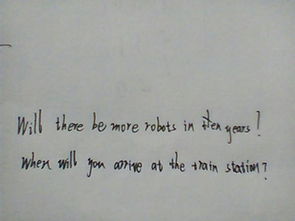 Will there be more robots in ten years!
When will you arrive at the train station?